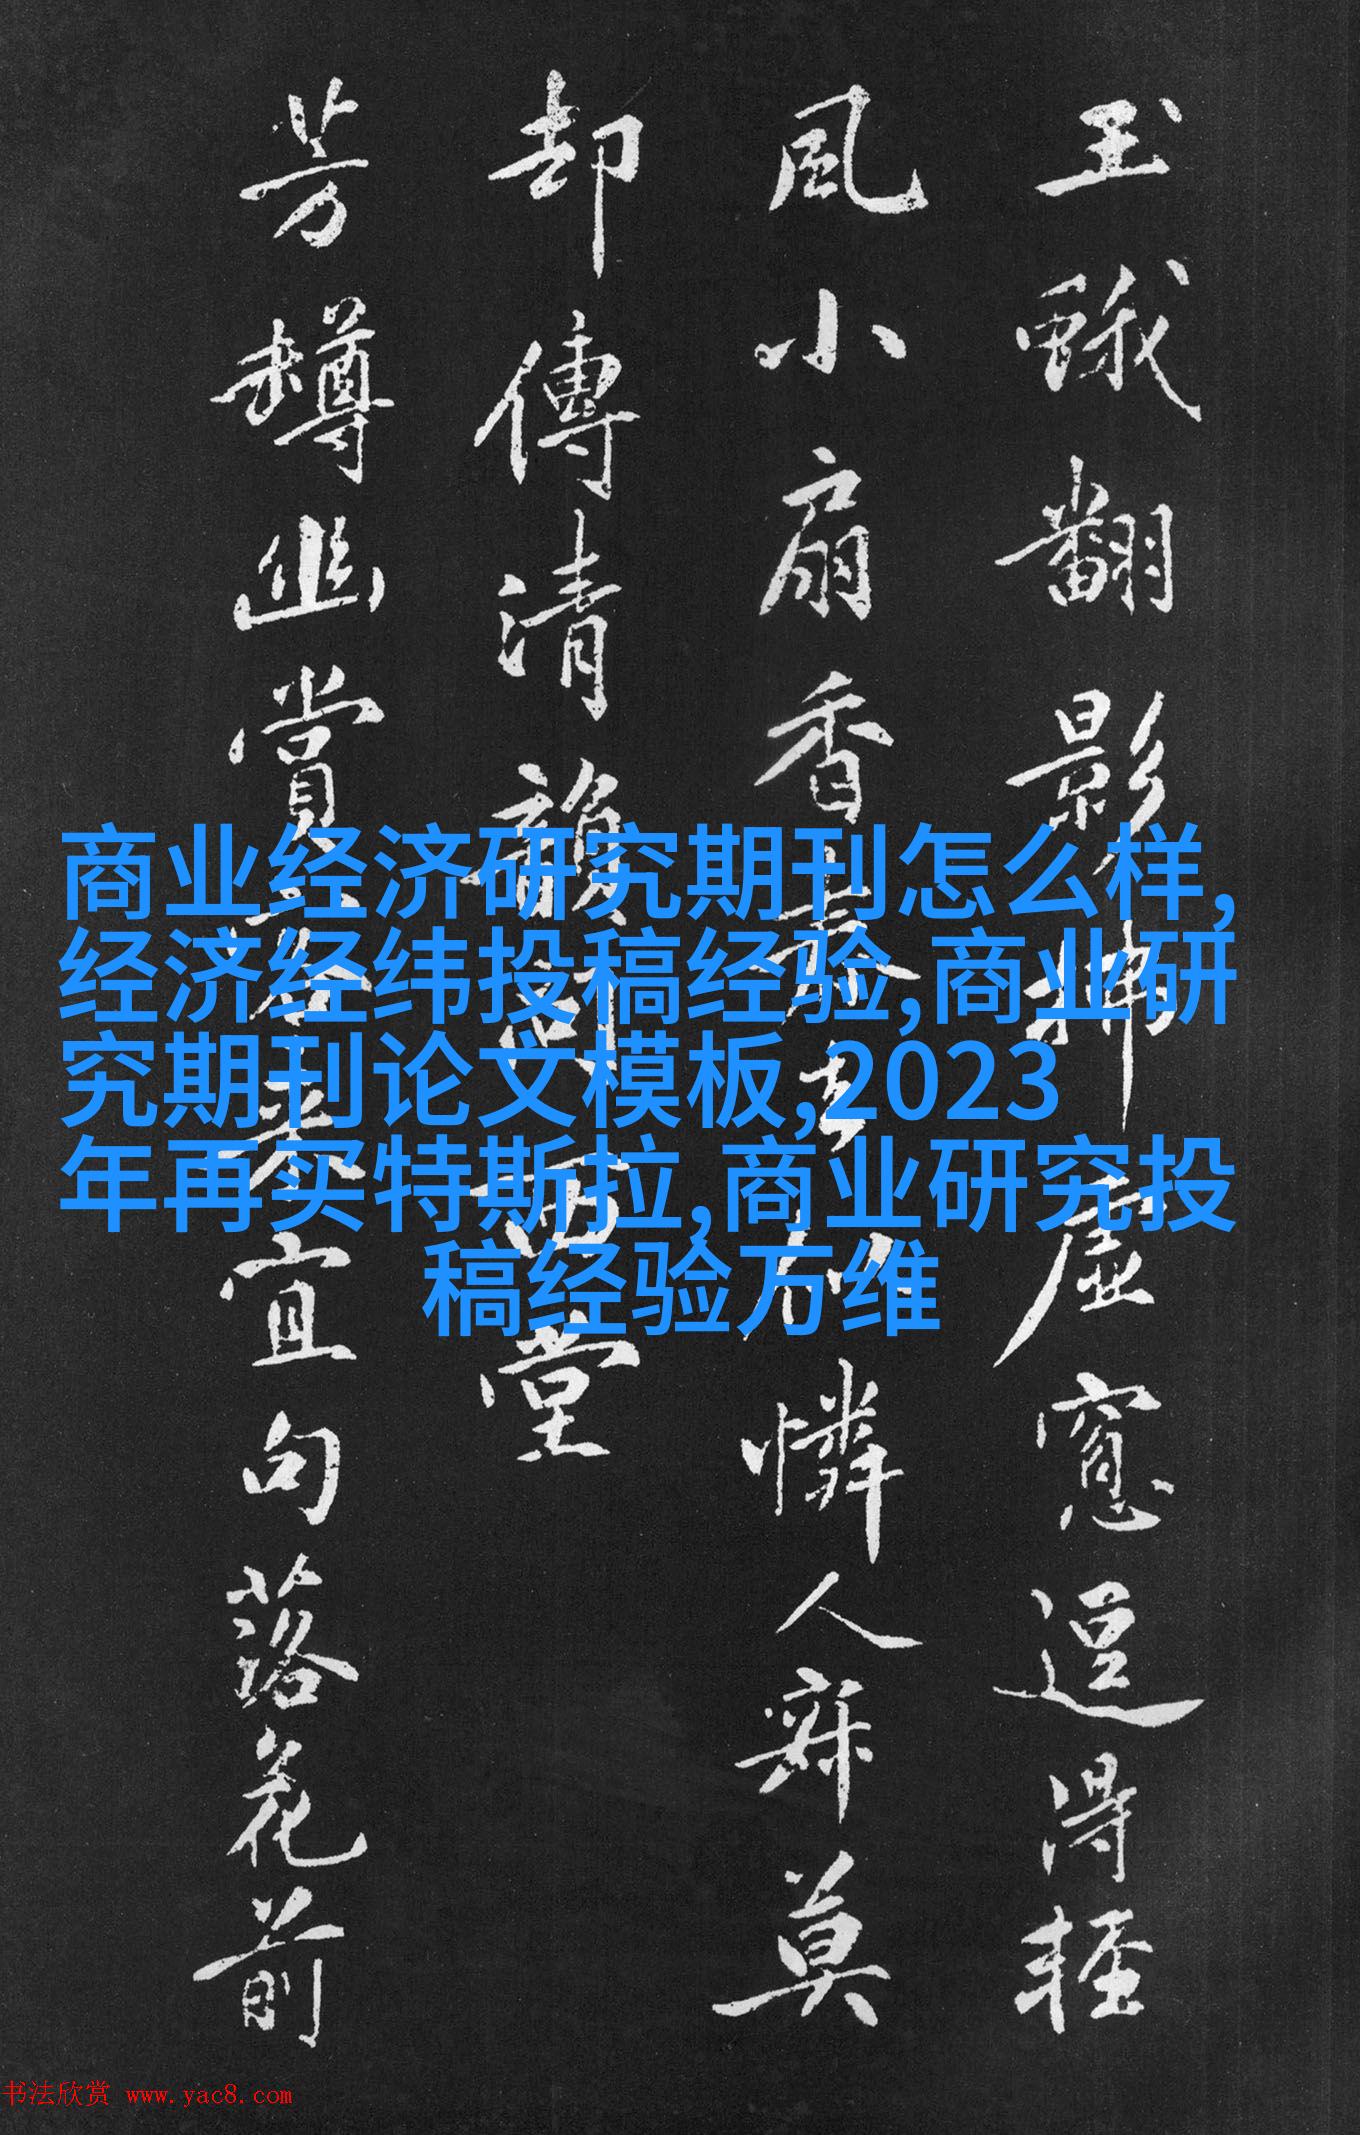 商业经济研究期刊怎么样,
经济经纬投稿经验,商业研
究期刊论文模板,2023
年再买特斯拉,商业研究投
稿经验万维
玉蛾翻影虚窻逗得輕
風小扇香憐人寐莫
却傳清韻西堂
芳罇幽賞宜句落花前
书法欣赏 www.yac8.com